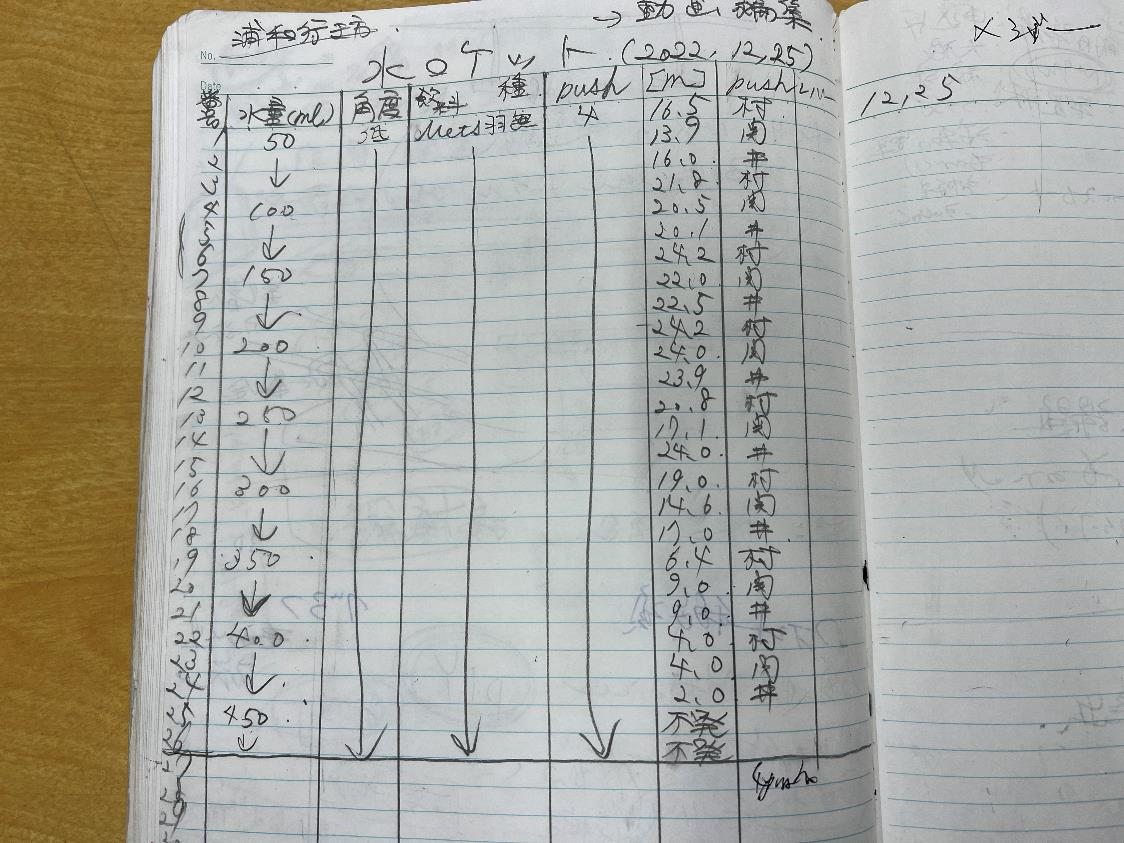 →動画編集
No.
水ロケット (2022,12,25)
×3
12,25
Date
番号 水量(ml) 角度 飲料 種 push [m] push
1 50 Mets 4 16.5 村
2 ↓ 13.9 関
3 16.0 井
4 100 21.8 村
5 ↓ 20.5 関
6 20.1 井
7 150 24.2 村
8 ↓ 22.0 関
9 22.5 井
10 200 24.2 村
11 ↓ 24.0 関
12 23.9 井
13 250 20.8 村
14 ↓ 17.1 関
15 24.0 井
16 300 19.0 村
17 ↓ 14.6 関
18 17.0 井
19 350 6.4 村
20 ↓ 9.0 関
21 9.0 井
22 400 4.0 村
23 ↓ 4.0 関
24 2.0 井
25 450 不発
↓ 不発
4push